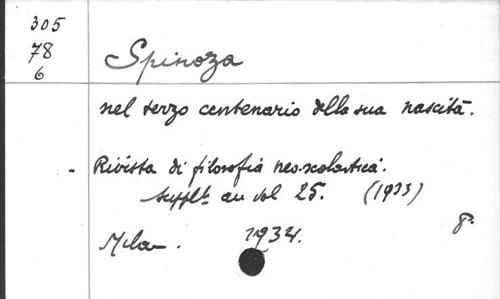 305
78
6
Spinoza
nel terzo centenario della sua nascità.
- Rivista di filosofia neo-scolastica.
Supplt au vol 25. (1933)
8°.
Milan. 1934.